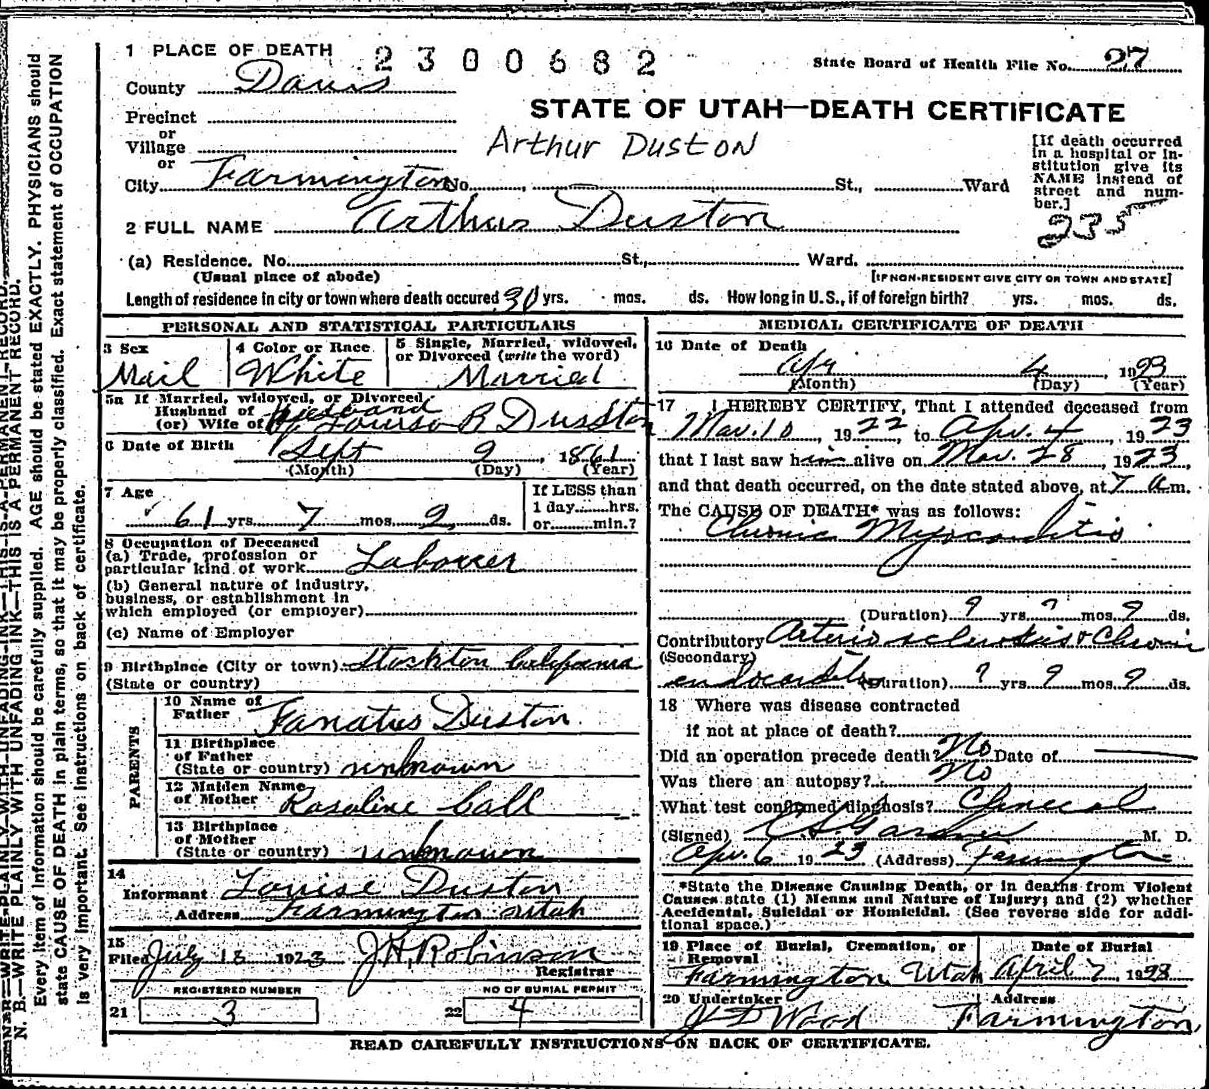 1 PLACE OF DEATH
2300682
State Board of Health File No. 27
County Davis
STATE OF UTAH—DEATH CERTIFICATE
Precinct
or
Village
Arthur Duston
or
City Farmington No. , St., Ward
[If death occurred
in a hospital or in-
stitution give its
NAME instead of
street and num-
ber.]
235
2 FULL NAME Arthur Duston
(a) Residence. No. St., Ward.
(Usual place of abode)
[IF NON-RESIDENT GIVE CITY OR TOWN AND STATE]
Length of residence in city or town where death occured 30 yrs. mos. ds. How long in U.S., if of foreign birth? yrs. mos. ds.
PERSONAL AND STATISTICAL PARTICULARS
3 Sex
Mail
4 Color or Race
White
5 Single, Married, widowed,
or Divorced (write the word)
Married
5a If Married, widowed, or Divorced
Husband of husband
(or) Wife of of Louisa R Dusston
6 Date of Birth
Sept 9, 1861
(Month) (Day) (Year)
7 Age
61 yrs. 7 mos. 9 ds.
If LESS than
1 day......hrs.
or......min.?
8 Occupation of Deceased
(a) Trade, profession or
particular kind of work Labourer
(b) General nature of Industry,
business, or establishment in
which employed (or employer)
(c) Name of Employer
9 Birthplace (City or town) Stockton California
(State or country)
PARENTS
10 Name of
Father Fanatus Duston
11 Birthplace
of Father
(State or country) unknown
12 Maiden Name
of Mother Rosaline Call
13 Birthplace
of Mother
(State or country) unknown
14
Informant Louise Duston
Address Farmington Utah
15
Filed July 18 1923 J H Robinson
Registrar
REGISTERED NUMBER
21 3
NO OF BURIAL PERMIT
22 4
MEDICAL CERTIFICATE OF DEATH
16 Date of Death
Apr 4, 1923
(Month) (Day) (Year)
17 I HEREBY CERTIFY, That I attended deceased from
Mar. 10, 1922, to Apr. 4, 1923
that I last saw him alive on Mar. 28, 1923,
and that death occurred, on the date stated above, at 7 a m.
The CAUSE OF DEATH* was as follows:
Chronic Myocarditis
(Duration) ? yrs. ? mos. ? ds.
Contributory Arterio sclerosis & Chronic
(Secondary)
endocarditis (Duration) ? yrs. ? mos. ? ds.
18 Where was disease contracted
if not at place of death?
Did an operation precede death? No Date of
Was there an autopsy? No
What test confirmed diagnosis? Clinecal
(Signed) Gardner M. D.
Apr. 6 1923 (Address) Farmington
*State the Disease Causing Death, or in deaths from Violent
Causes state (1) Means and Nature of Injury; and (2) whether
Accidental, Suicidal or Homicidal. (See reverse side for addi-
tional space.)
19 Place of Burial, Cremation, or
Removal
Farmington Utah
Date of Burial
April 7 1923
20 Undertaker
J D Wood
Address
Farmington,
READ CAREFULLY INSTRUCTIONS ON BACK OF CERTIFICATE.
N. B.—WRITE PLAINLY WITH UNFADING INK—THIS IS A PERMANENT RECORD.
Every item of information should be carefully supplied. AGE should be stated EXACTLY. PHYSICIANS should
state CAUSE OF DEATH in plain terms, so that it may be properly classified. Exact statement of OCCUPATION
is very important. See instructions on back of certificate.